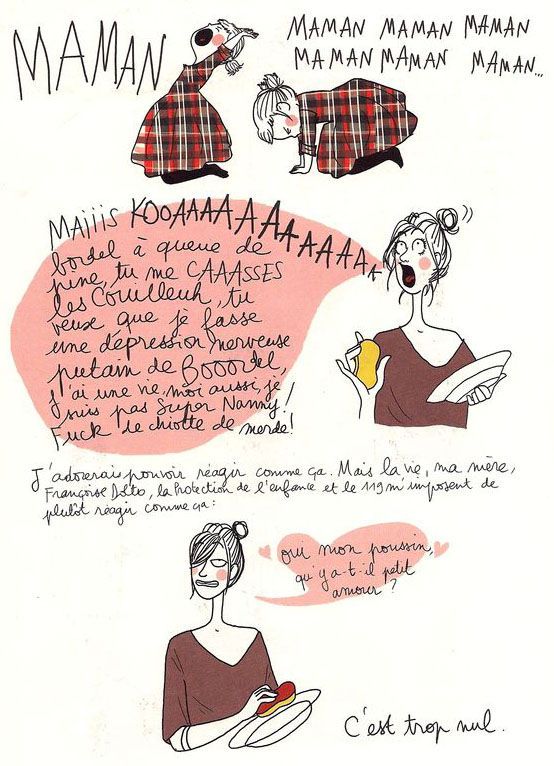 MAMAN
MAMAN MAMAN MAMAN
MAMAN MAMAN MAMAN...
MAIIIS KOOAAAAAAAAAAAAK
bordel à queue de
pine, tu me CAAASSES
les Couilleuh, tu
veux que je fasse
une dépression nerveuse
putain de BOOORdel,
j'ai une vie, moi aussi, je
suis pas Super Nanny!
Fuck de chiotte de merde!
J'adorerais pouvoir réagir comme ça. Mais la vie, ma mère,
Françoise Dolto, la Protection de l'enfance et le 119 m'imposent de
plutôt réagir comme ça:
oui mon poussin,
qu'y a-t-il petit
amour?
C'est trop nul.